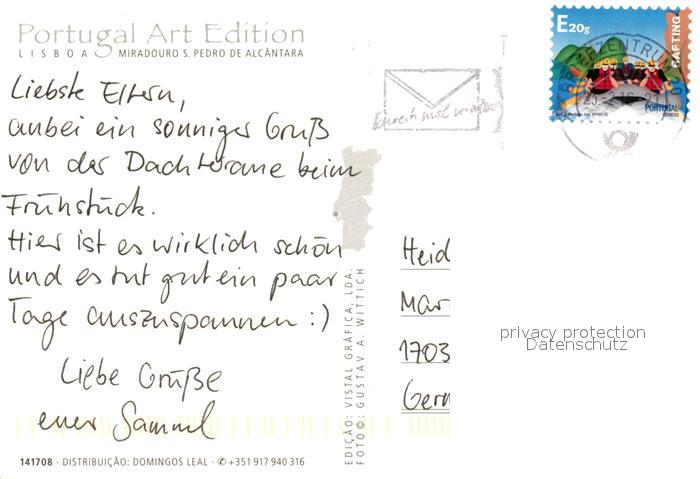 Portugal Art Edition
LISBOA MIRADOURO S. PEDRO DE ALCÂNTARA
Liebste Eltern,
anbei ein sonniger Gruß
von der Dachterasse beim
Frühstück.
Hier ist es wirklich schön
und es tut gut ein paar
Tage auszuspannen :)
Liebe Grüße
euer Samuel
141708 · DISTRIBUIÇÃO: DOMINGOS LEAL · ✆ +351 917 940 316
EDIÇÃO: VISTAL GRÁFICA, LDA.
FOTO©: GUSTAV A. WITTICH
E20g
RAFTING
PORTUGAL
BRIEFZENTRUM
mal wieder
Heid
Mar
1703
Gern
privacy protection
Datenschutz